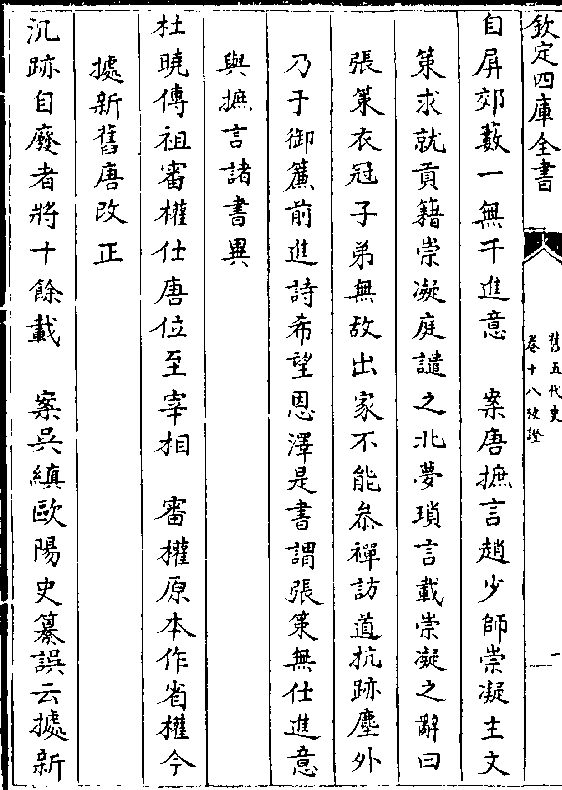 欽定四庫全書
舊五代史
卷十八考證
一
自屏郊藪一無干進意　案唐摭言趙少師崇凝主文
策求就貢籍崇凝庭譴之北夢瑣言載崇凝之辭曰
張策衣冠子弟無故出家不能叅禪訪道抗跡塵外
乃于御簾前進詩希望恩澤是書謂張策無仕進意
與摭言諸書異
杜曉傳祖審權仕唐位至宰相　審權原本作省權今
據新舊唐改正
沉跡自廢者將十餘載　案吳縝歐陽史纂誤云據新